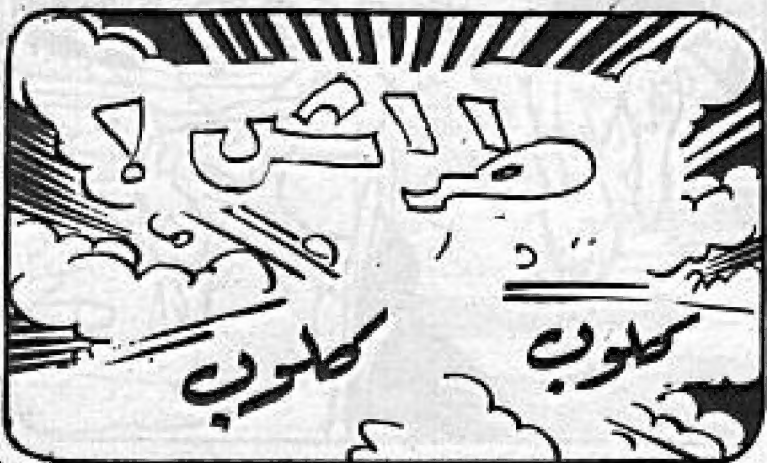 طراش !
كلوب كلوب